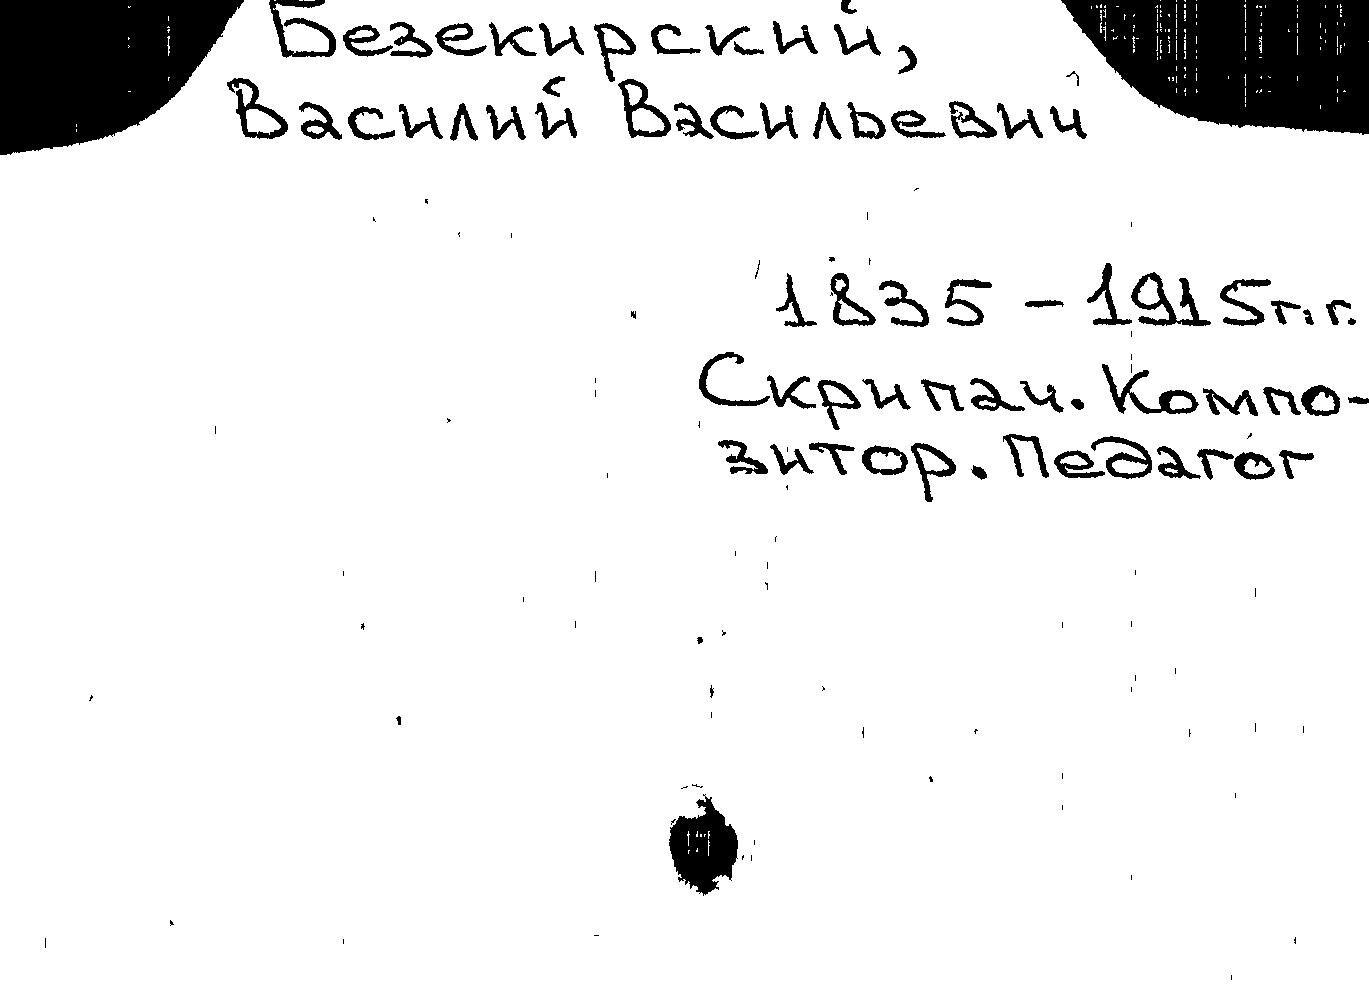 Безекирский,
Василий Васильевич
1835 – 1915 г.г.
Скрипач. Компо-
зитор. Педагог